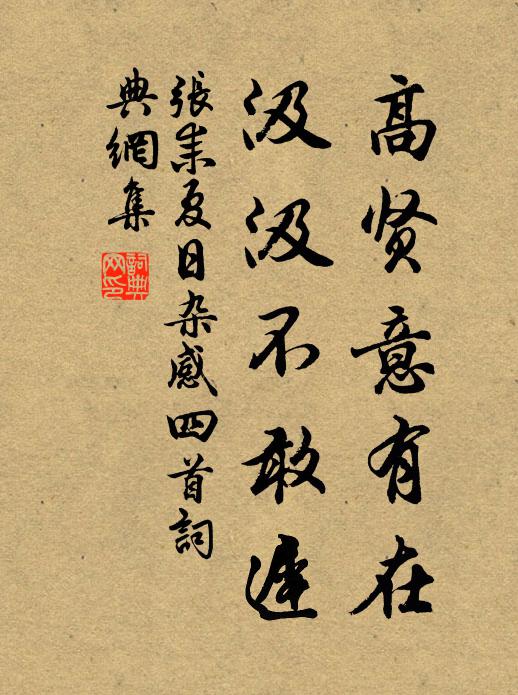 高贤意有在
汲汲不敢遲
張耒夏日杂感四首詞
典網集
詞典网印